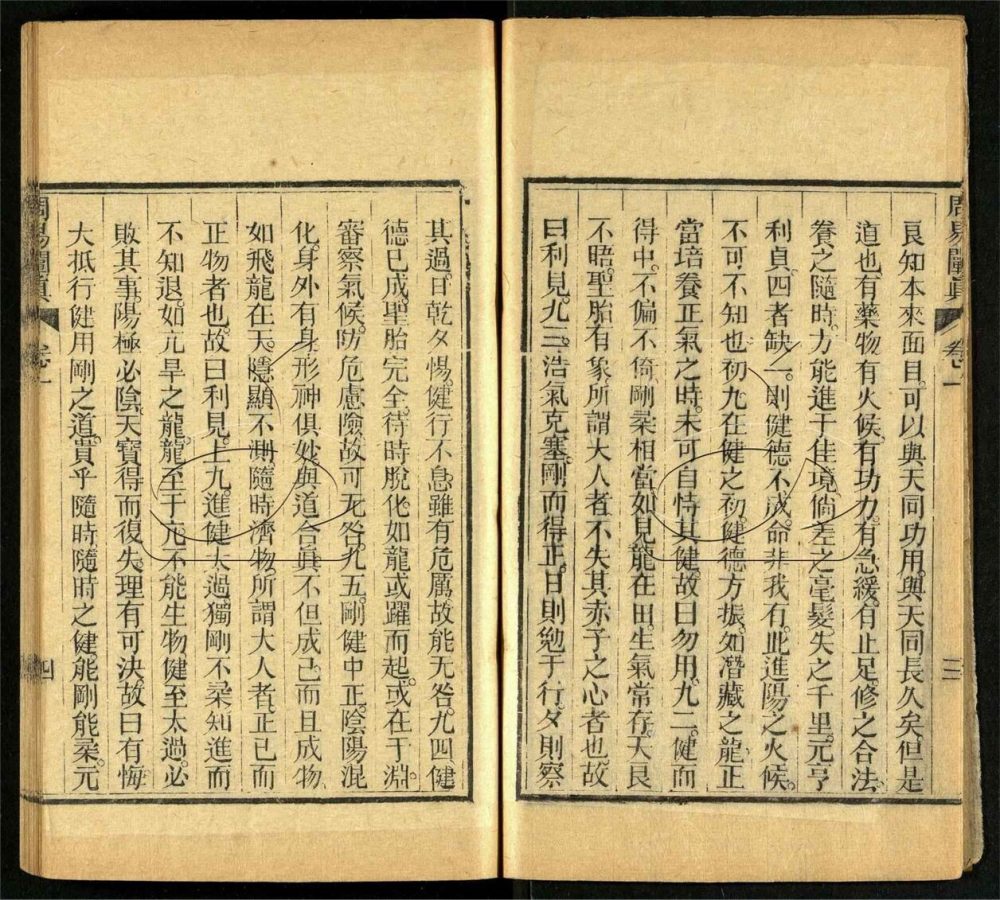 周易闡真
卷一
三
良知本來面目可以與天同功用與天同長久矣但是
道也有藥物有火候有功力有急緩有止足修之合法
養之隨時力能進于佳境倘差之毫髮失之千里元亨
利貞四者缺一則健德不成命非我有此進陽之火候
不可不知也初九在健之初健德方振如潛藏之龍正
當培養正氣之時未可自恃其健故曰勿用九二健而
得中不偏不倚剛柔相當如見龍在田生氣常存天良
不晤聖胎有象所謂大人者不失其赤子之心者也故
曰利見九三浩氣克塞剛而得正日則勉于行夕則察
其過日乾夕惕健行不息雖有危厲故能无咎九四健
德已成聖胎完全待時脫化如龍或躍而起或在于淵
審察氣候防危慮險故可无咎九五剛健中正陰陽混
化身外有身形神俱妙與道合真不但成己而且成物
如飛龍在天隱顯不測隨時濟物所謂大人者正己而
正物者也故曰利見上九進健太過獨剛不柔知進而
不知退如亢旱之龍龍至于亢不能生物健至太過必
敗其事陽極必陰天寶得而復失理有可決故曰有悔
大抵行健用剛之道貴乎隨時隨時之健能剛能柔元
周易闡真
卷一
四